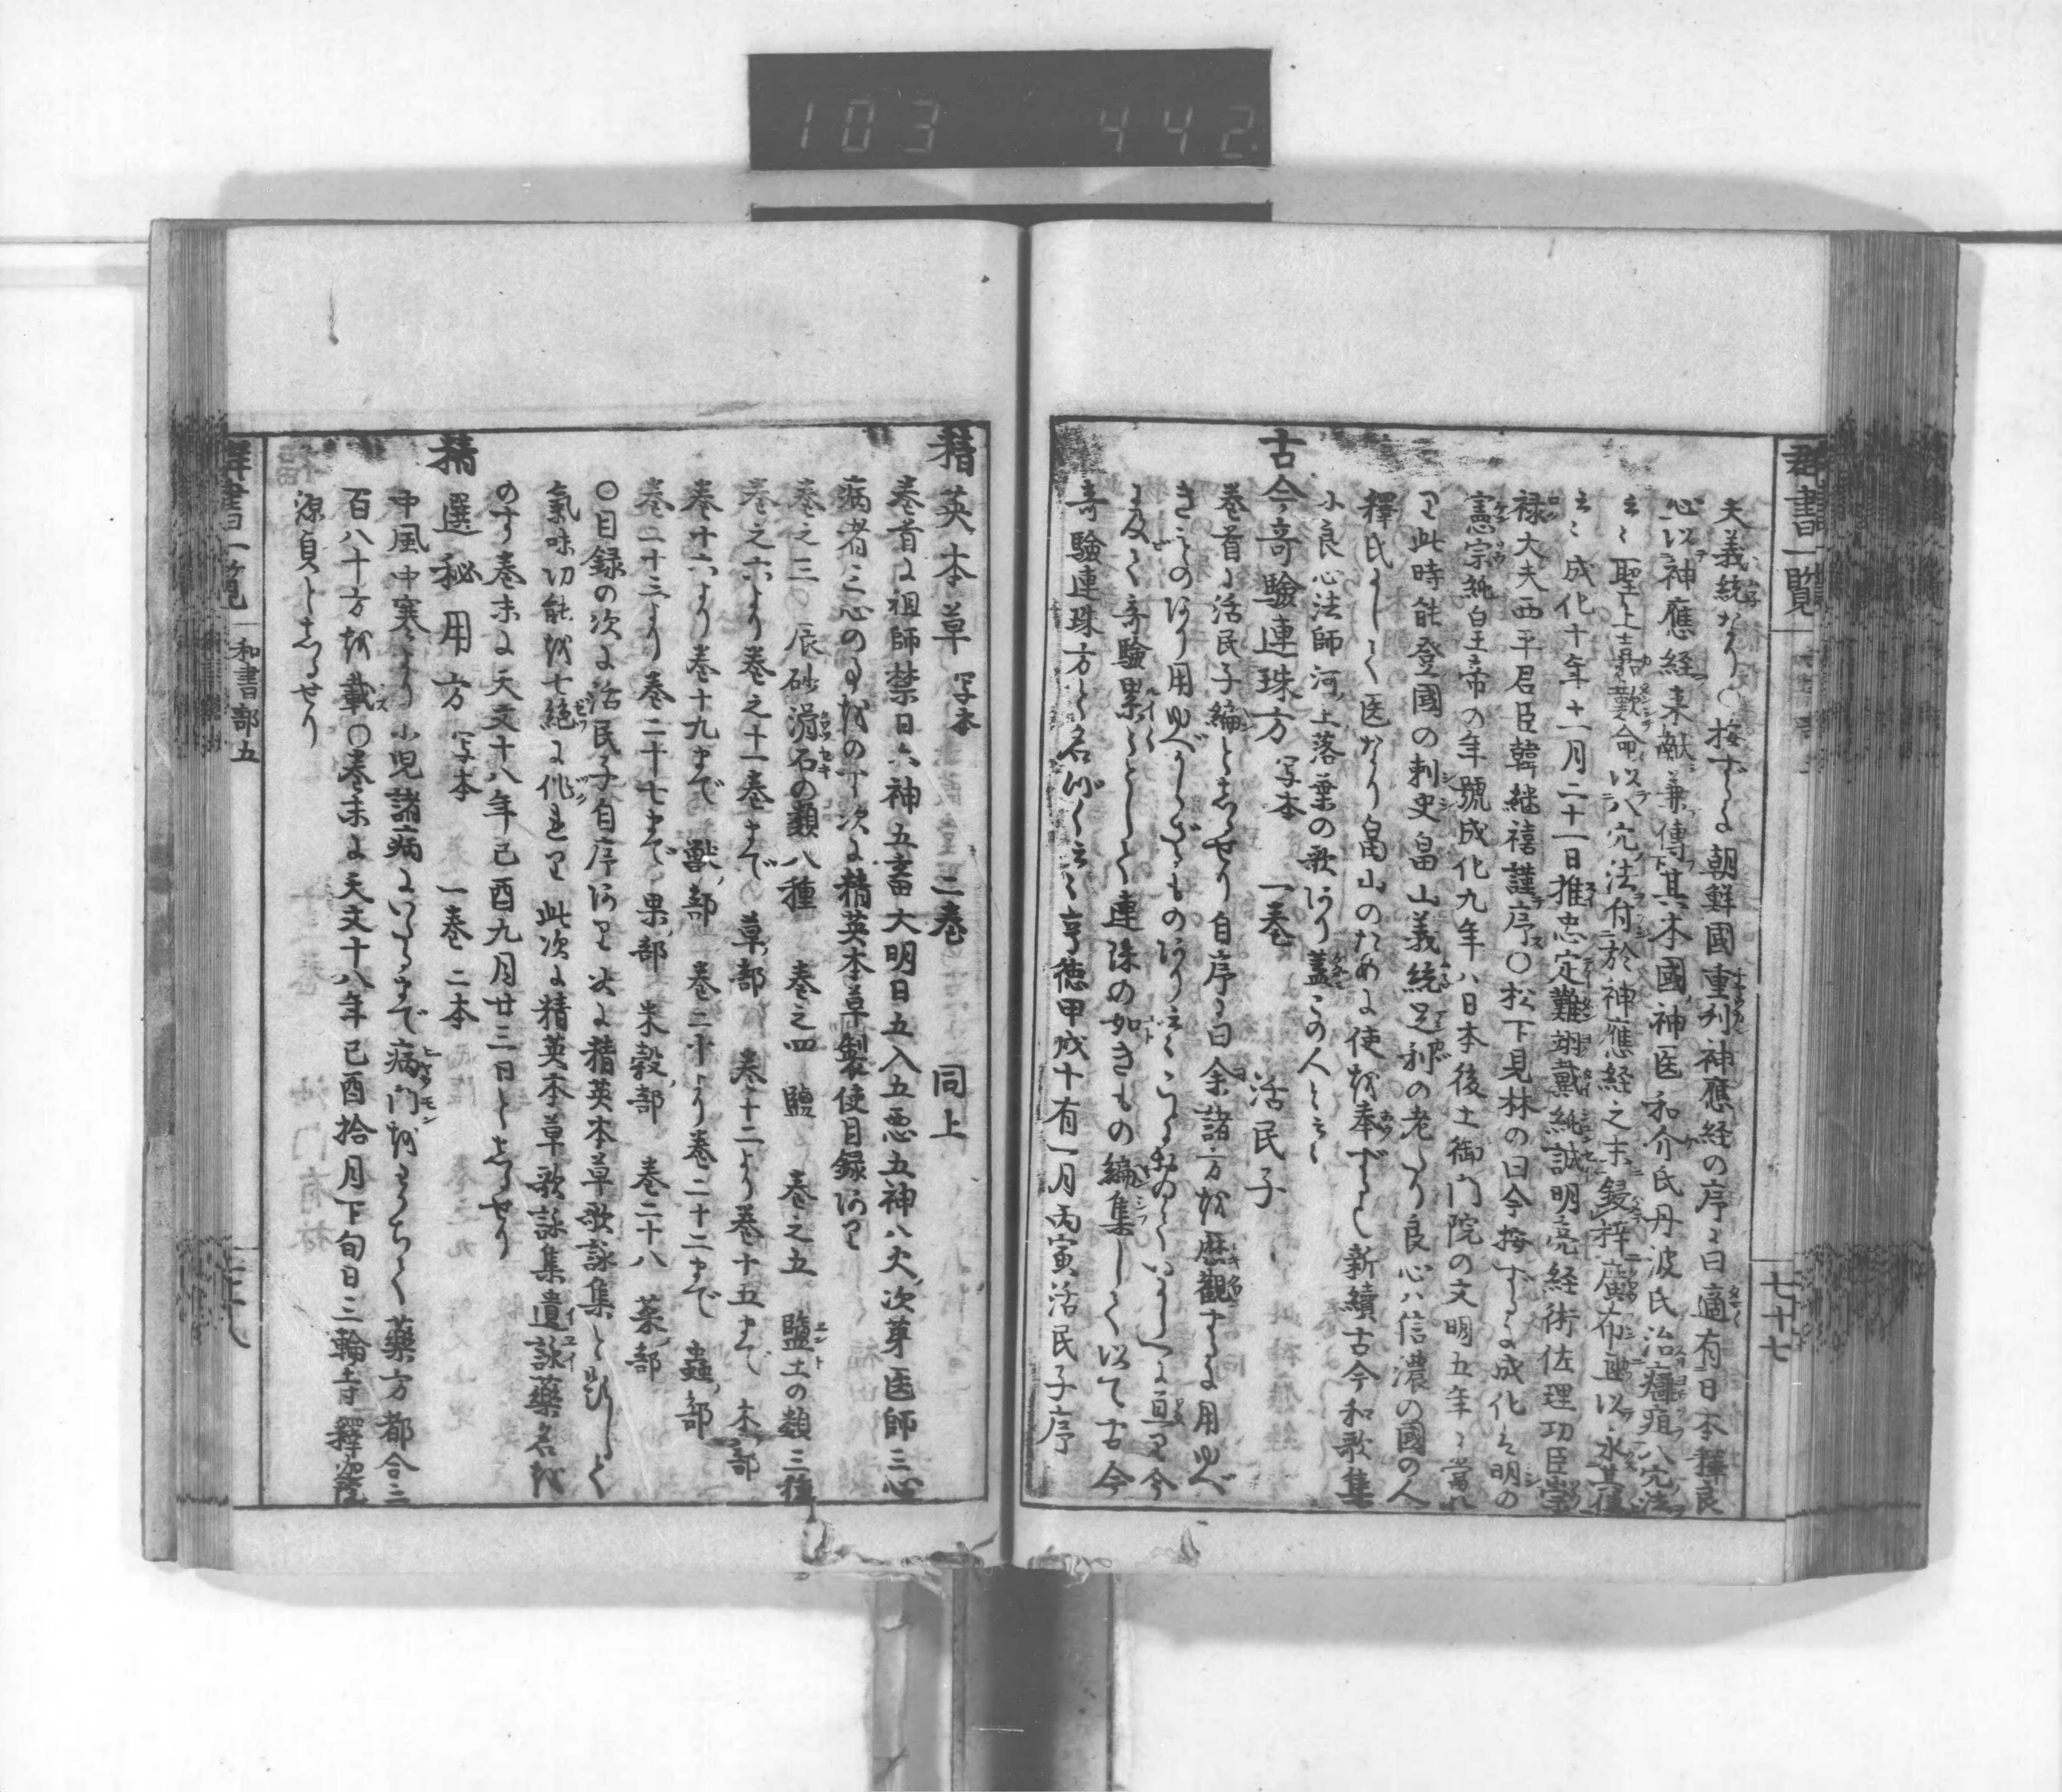 103 442
群書一覧
七十七
夫義統なり○按ずるに朝鮮國重刋神應経の序に曰適有日本釋良
心以神應経来献兼傳其本國神医和介氏丹波氏治癰疽八穴法
云々聖上嘉歎命以八穴法付於神應経之末鋟梓廣布以永其傳
云々成化十年十一月二十一日推忠定難翊戴純誠明亮経術佐理功臣崇
禄大夫西平君臣韓継禧謹序○松下見林の曰今按ずるに成化は明の
憲宗純皇帝の年號成化九年ハ日本後土御門院の文明五年に當れ
り此時能登國の刺史畠山義統足利の老たり良心ハ信濃の國の人
釋氏にして医なり畠山のために使を奉ずと新續古今和歌集
に良心法師河上落葉の歌あり蓋この人と云々
古今奇驗連珠方 写本 一巻 活民子
巻首に活民子編としるせり自序に曰余諸方を歴觀するに用ゆべ
きものあり用ゆべからざるものあり云々
に及て奇驗累〻として連珠の如きもの編集して以て古今
奇驗連珠方と名づくと云々享徳甲戌十有一月丙寅活民子序
精英本草 写本 二巻 同上
巻首に祖師禁日六神五畜大明日五入五悪五神八火次芽医師三心
病者三心の事をのす次に精英本草製使目録あり
巻之三 辰砂滑石の類八種 巻之四 鹽 巻之五 鹽土の類三種
巻之六より巻之十一巻まで 草部 巻十二より巻十五まで 木部
巻十六より巻十九まで 獣部 巻二十より巻二十二まで 蟲部
巻二十三より巻二十七まで 果部 米穀部 巻二十八 菜部
○目録の次に活民子自序あり次に精英本草歌詠集と題して
氣味功能を七絶に作れり此次に精英本草歌詠集遺詠藥名を
のす巻末に天文十八年己酉九月廿三日としるせり
精選秘用方 写本 一巻 二本
中風中寒より小児諸病にいたるまで病門をわかちて藥方都合三
百八十方を載○巻末に天文十八年己酉拾月下旬日三輪寺釋
源貞としるせり
群書一覧
和書部五